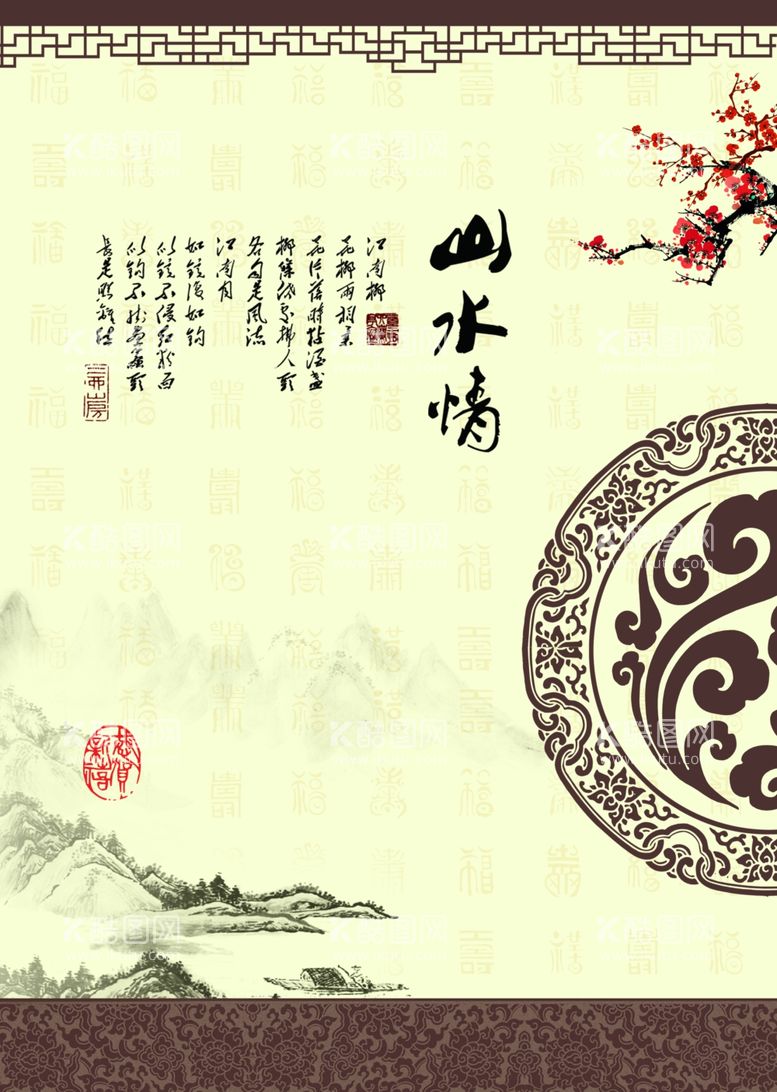 山水情
江南柳
花柳两相柔
花片落时黏酒盏
柳条低处拂人头
各自是风流
江南月
如镜复如钩
似镜不侵红粉面
似钩不挂画帘头
长是照离愁
恭賀新禧
酷图网
www.ikutu.com